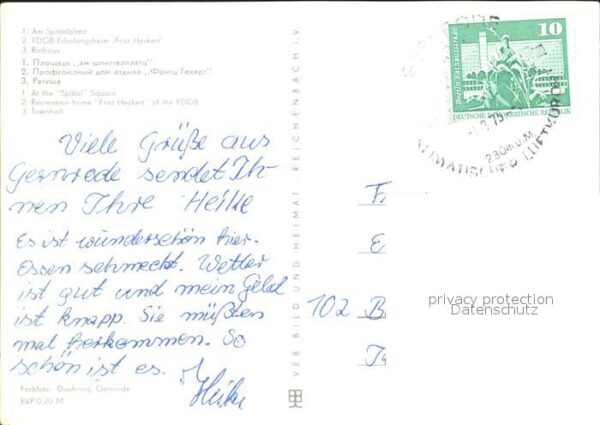 1. Am Spittelplatz
2. FDGB-Erholungsheim „Fritz Heckert"
3. Rathaus
1. Площадь „ам шпиттелплатц"
2. Профсоюзный дом отдыха „Фритц Гекерт"
3. Ратуша
1. At the "Spittel" Square
2. Recreation home "Fritz Heckert" of the FDGB
3. Townhall
Viele Grüße aus
Gernrode sendet Ih-
nen Ihre Heike
Es ist wunderschön hier.
Essen schmeckt. Wetter
ist gut und mein Geld
ist knapp. Sie müßten
mal herkommen. So
schön ist es.
Heike
Farbfoto: Duehring, Gernrode
EVP 0.20 M
VEB BILD UND HEIMAT REICHENBACH I. V.
10
Berlin, Rathausstraße
DEUTSCHE DEMOKRATISCHE REPUBLIK
230m ü.M.
KLIMATISCHER LUFTKURORT
F
E
102 B
privacy protection
Datenschutz